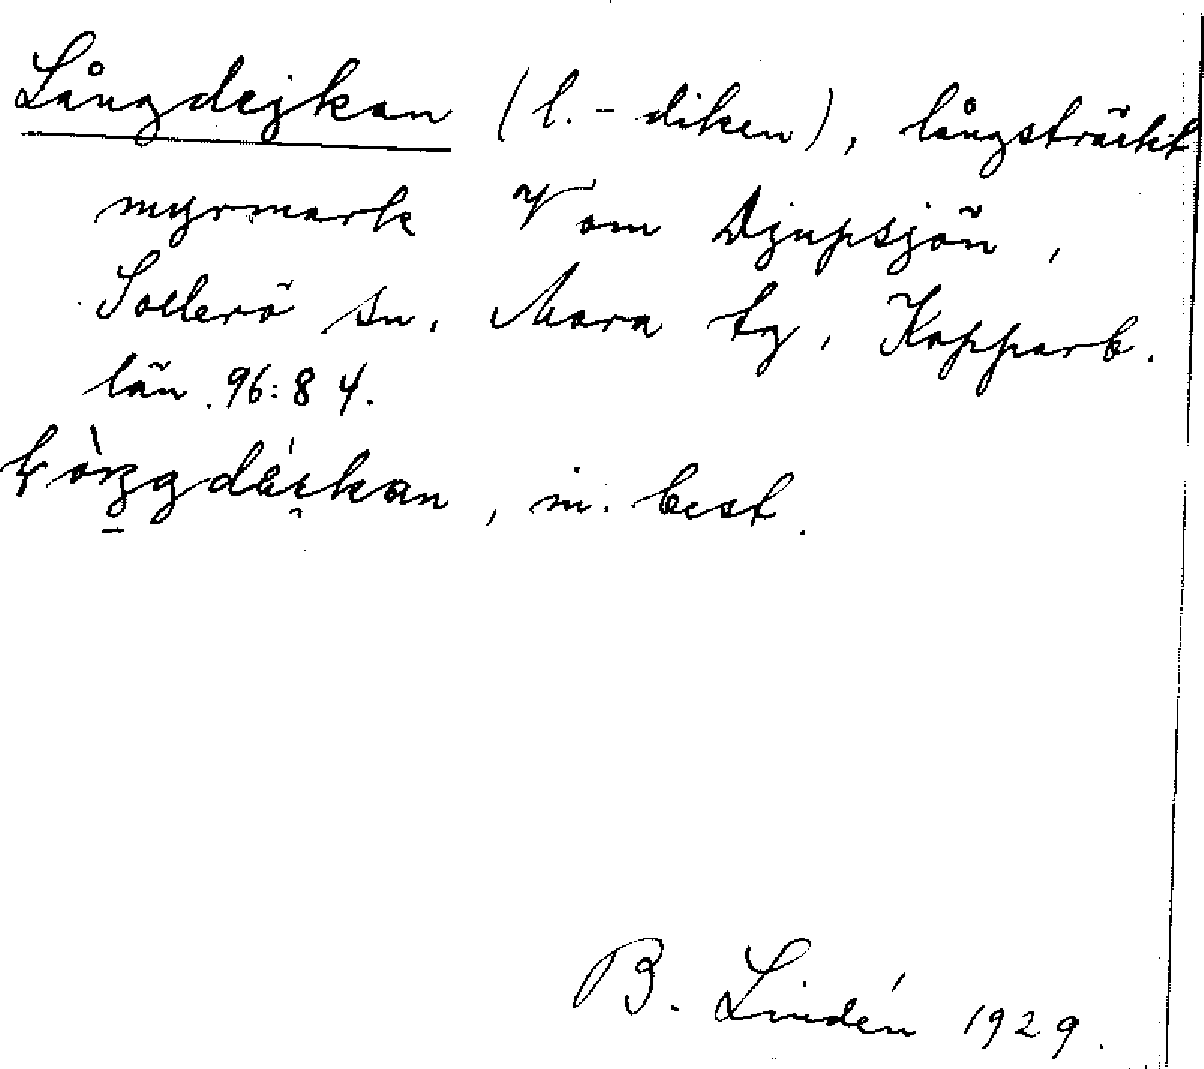 Långdejkan (l. - diken), långsträckt
myrmark V om Djupsjön,
Sollerö sn. Mora tg, Kopparb.
län. 96:84.
m. best.
B. Lindén 1929.